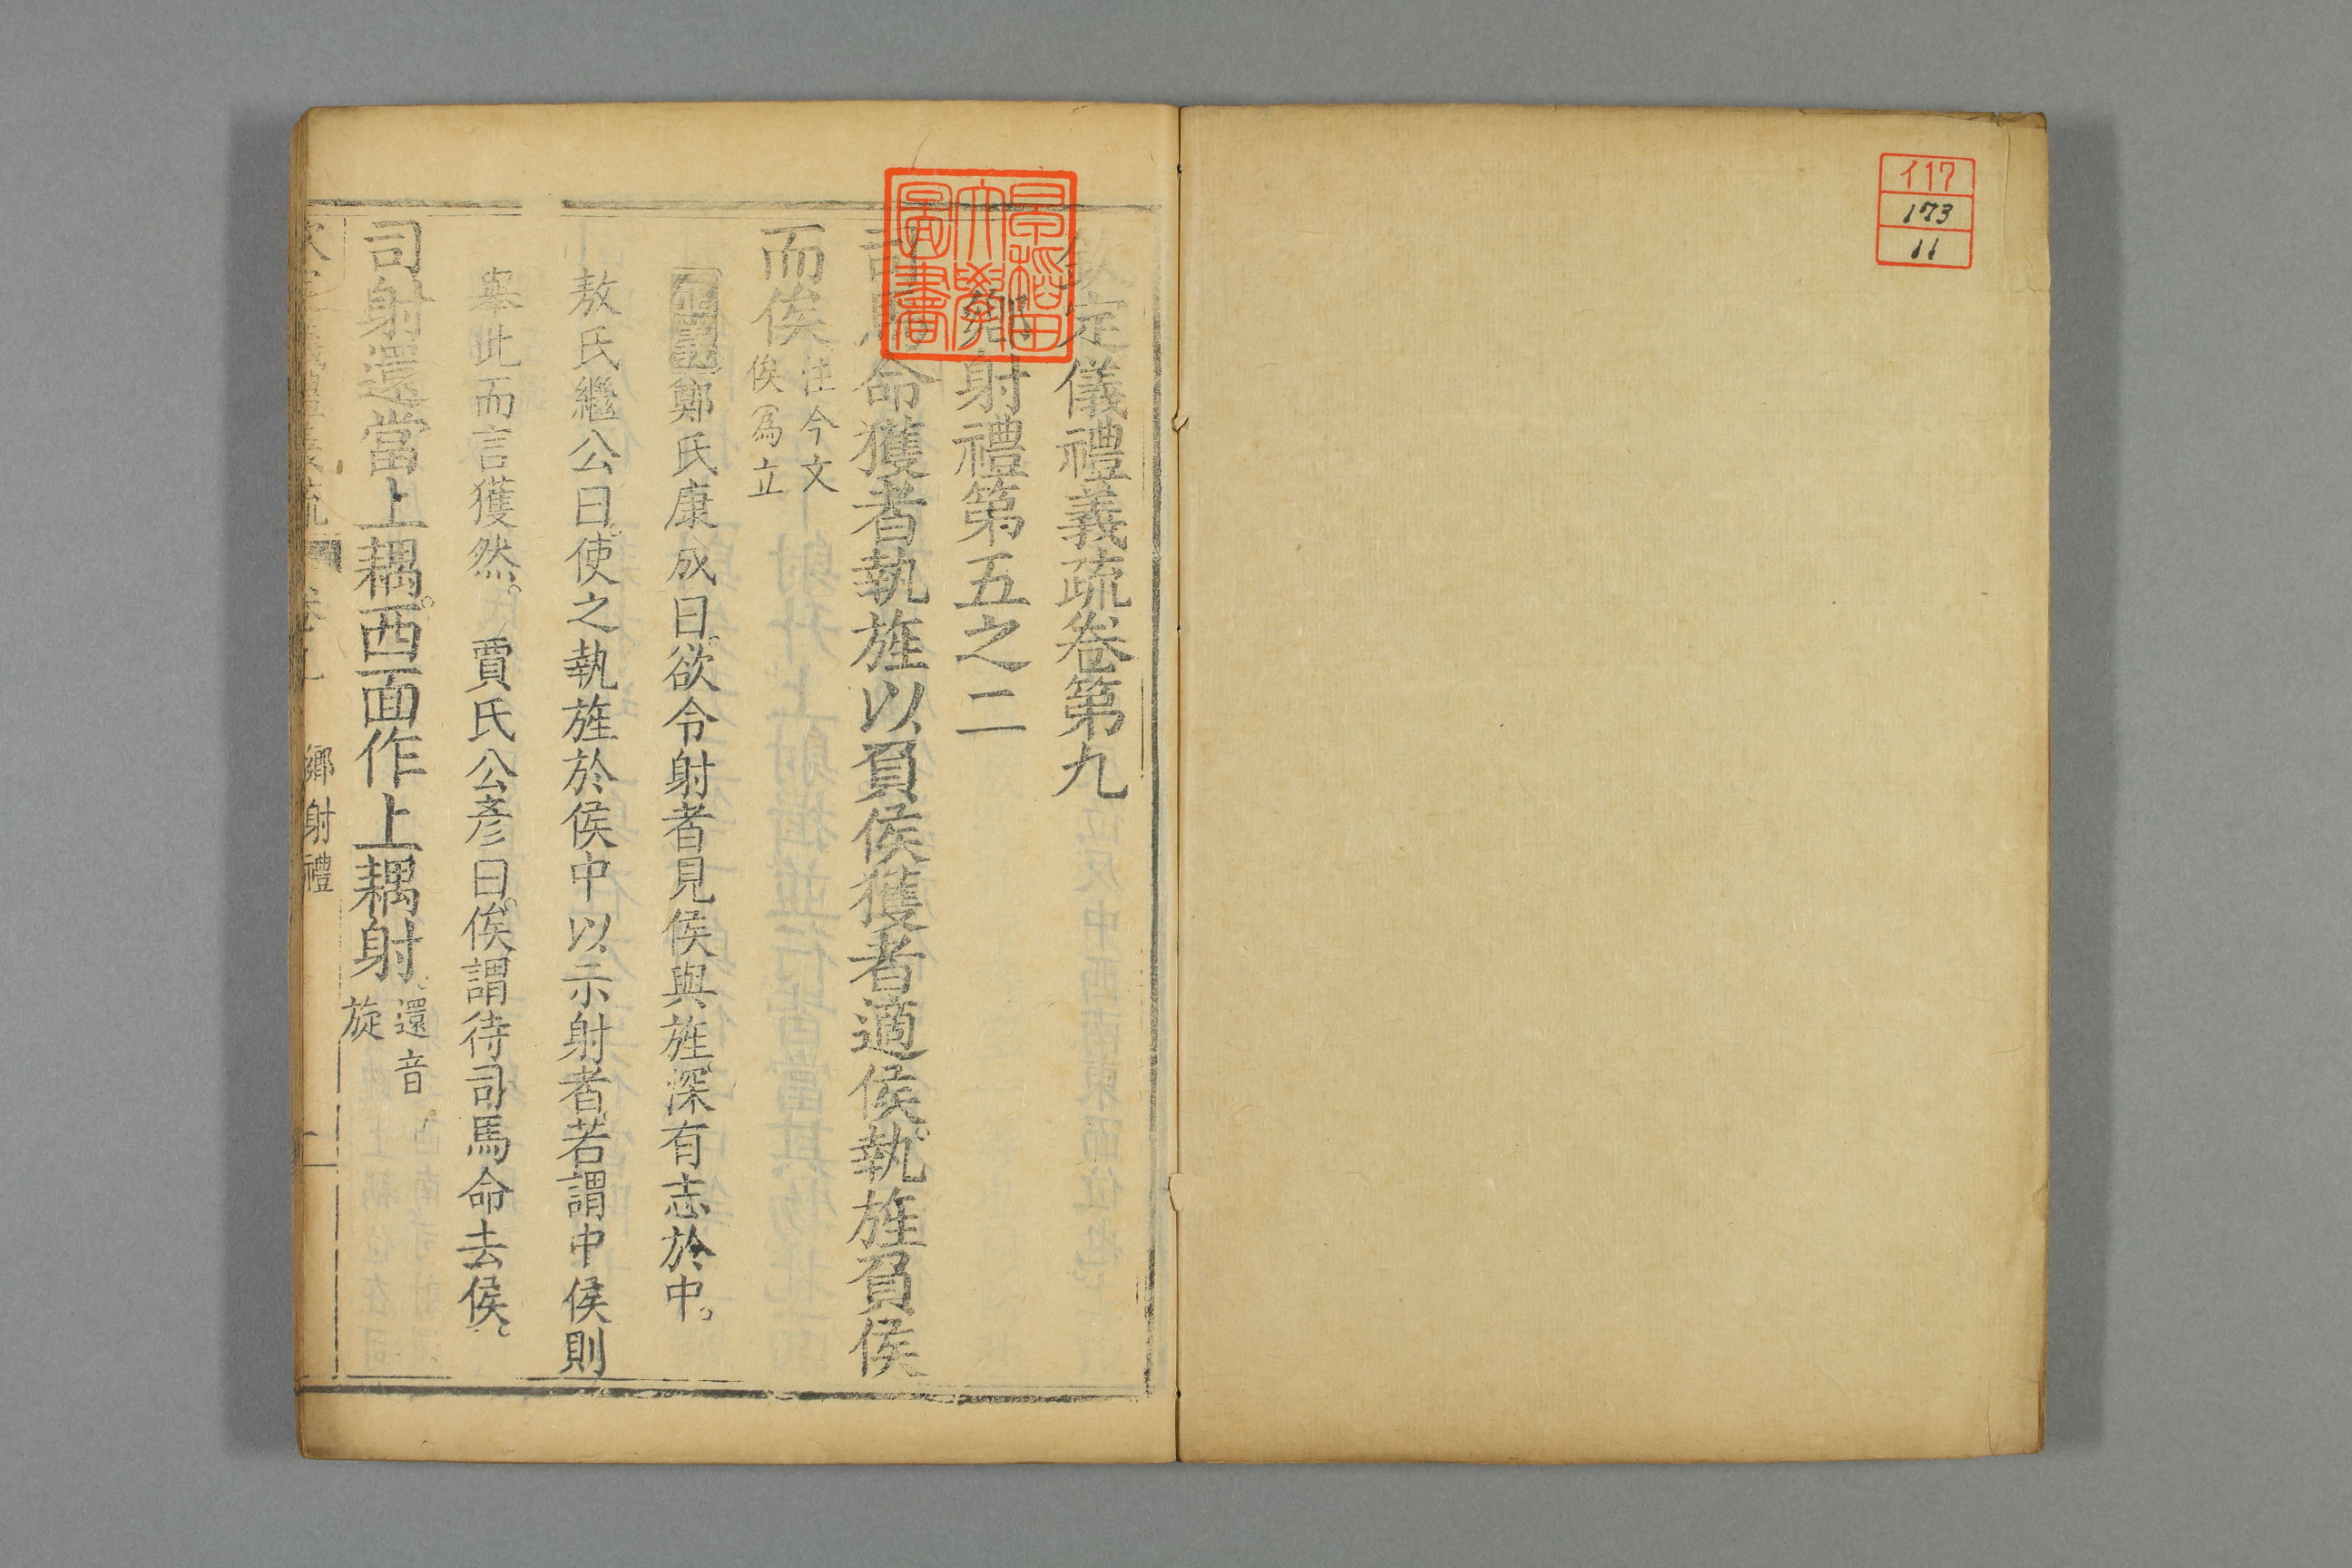 イ17
173
11
欽定儀禮義疏卷第九
鄉射禮第五之二
司馬命獲者執旌以負侯獲者適侯。執旌負侯
而俟
注今文
俟爲立
正義鄭氏康成曰。欲令射者見侯與旌。深有志於中。
敖氏繼公曰。使之執旌於侯中以示射者。若謂中侯則
舉此而言獲然。 賈氏公彥曰。俟謂待司馬命去侯。
司射還當上耦。西面作上耦射
還音
旋
鄉射禮
早稻田
大學
圖書